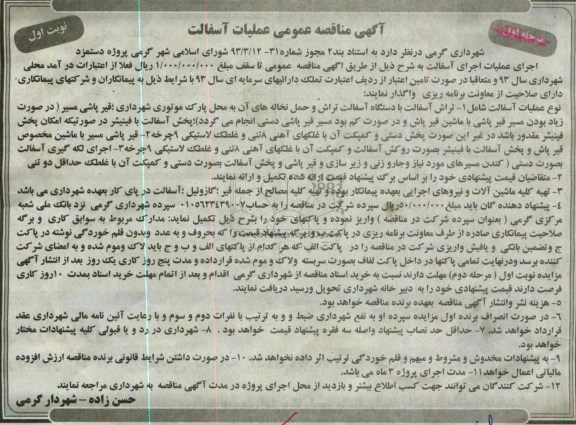 آگهی مناقصه عمومی عملیات آسفالت
نوبت اول
مرحله اول
شهرداری گرمی درنظر دارد به استناد بند۲ مجوز شماره۳۱- ۹۳/۳/۱۲ شورای اسلامی شهر گرمی پروژه دستمزد
اجرای عملیات اجرای آسفالت به شرح ذیل از طریق آگهی مناقصه عمومی تا سقف مبلغ ۱/۰۰۰/۰۰۰/۰۰۰ ریال فعلا از اعتبارات در آمد محلی
شهرداری سال ۹۳ و متعاقبا در صورت تامین اعتبار از ردیف اعتبارت تملک دارائیهای سرمایه ای سال ۹۳ با شرایط ذیل به پیمانکاران و شرکتهای پیمانکاری
دارای صلاحیت از معاونت برنامه ریزی واگذار نمایند:
نوع عملیات آسفالت شامل:۱- تراش آسفالت با دستگاه آسفالت تراش و حمل نخاله های آن به محل پارک موتوری شهرداری ؛قیر پاشی مسیر ( در صورت
زیاد بودن مسیر قیر پاشی با ماشین قیر پاش و در صورت کم بود مسیر قیر پاشی دستی انجام می گردد)؛پخش آسفالت با فینیشر در صورتیکه امکان پخش
فینیشر مقدور باشد در غیر این صورت پخش دستی و کمپکت آن با غلکهای آهنی ۸تنی و غلطک لاستیکی ۹چرخه۲- قیر پاشی مسیر با ماشین مخصوص
قیر پاش و پخش آسفالت با فینیشر بصورت روکش آسفالت و کمپکت آن با غلکهای آهنی ۸تنی و غلطک لاستیکی ۹چرخه۳- اجرای لکه گیری آسفالت
بصورت دستی ( کندن مسیرهای مورد نیاز وجارو زنی و زیر سازی و قیر پاشی و پخش آسفالت بصورت دستی و کمپکت آن با غلطک حداقل دو تنی
۲- متقاضیان قیمت پیشنهادی خود را بر اساس برگ پیشنهاد قیمت ارائه شده تکمیل و ارائه نمایند.
۳- تهیه کلیه ماشین آلات و نیروهای اجرایی بعهده پیمانکار بوده و تهیه کلیه مصالح از جمله قیر ؛گازوئیل ؛آسفالت در پای کار بعهده شهرداری می باشد
۴- پیشنهاد دهنده گان باید مبلغ ریال سپرده شرکت در مناقصه را به حساب سپرده شهرداری گرمی نزد بانک ملی شعبه
مرکزی گرمی ( بعنوان سپرده شرکت در مناقصه ) واریز نموده و پاکتهای خود را بشرح ذیل تکمیل نماید: مدارک مربوط به سوابق کاری و برگه
صلاحیت پیمانکاری صادره از طرف معاونت برنامه ریزی در پاکت ب و برگه پیشنهاد قیمت را که بحروف و به عدد وبدون قلم خوردگی نوشته در پاکت
ج وتضمین بانکی و یافیش واریزی شرکت در مناقصه را در پاکت الف که هر کدام از پاکتهای الف و ب و ج باید لاک وموم شده و به امضای شرکت
کننده برسد ودرنهایت تمامی پاکتها در داخل پاکت لفاف بصورت سربسته ولاک و موم شده قرارداده و مدت پنج روز کاری یک روز بعد از انتشار آگهی
مزایده نوبت اول ( مرحله دوم) مهلت دارند نسبت به خرید اسناد مناقصه از شهرداری گرمی اقدام و بعد از اتمام مهلت خرید اسناد بمدت ۱۰روز کاری
فرصت دارند قیمت پیشنهادی خود را به دبیر خانه شهرداری تحویل ورسید دریافت نمایند.
۵- هزینه نشر وانتشار آگهی مناقصه بعهده برنده مناقصه خواهد بود.
۶- در صورت انصراف برنده اول مزایده سپرده او به نفع شهرداری ضبط و و به ترتیب با نفرات دوم و سوم و با رعایت آئین نامه مالی شهرداری عقد
قرارداد خواهد شد. ۷- حداقل حد نصاب پیشنهاد واصله سه فقره پیشنهاد قیمت خواهد بود . ۸- شهرداری در رد و یا قبولی کلیه پیشنهادات مختار
خواهد بود.
۹- به پیشنهادات مخدوش و مشروط و مبهم و قلم خوردگی ترتیب اثر داده نخواهد شد. ۱۰- در صورت داشتن شرایط قانونی برنده مناقصه ارزش افزوده
مالیاتی اعمال خواهد۱۱- مدت اجرای پروژه ۳ ماه می باشد.
۱۲- شرکت کنندگان می توانند جهت کسب اطلاع بیشتر و بازدید از محل اجرای پروژه در مدت آگهی مناقصه به شهرداری مراجعه نمایند
حسن زاده – شهردار گرمی